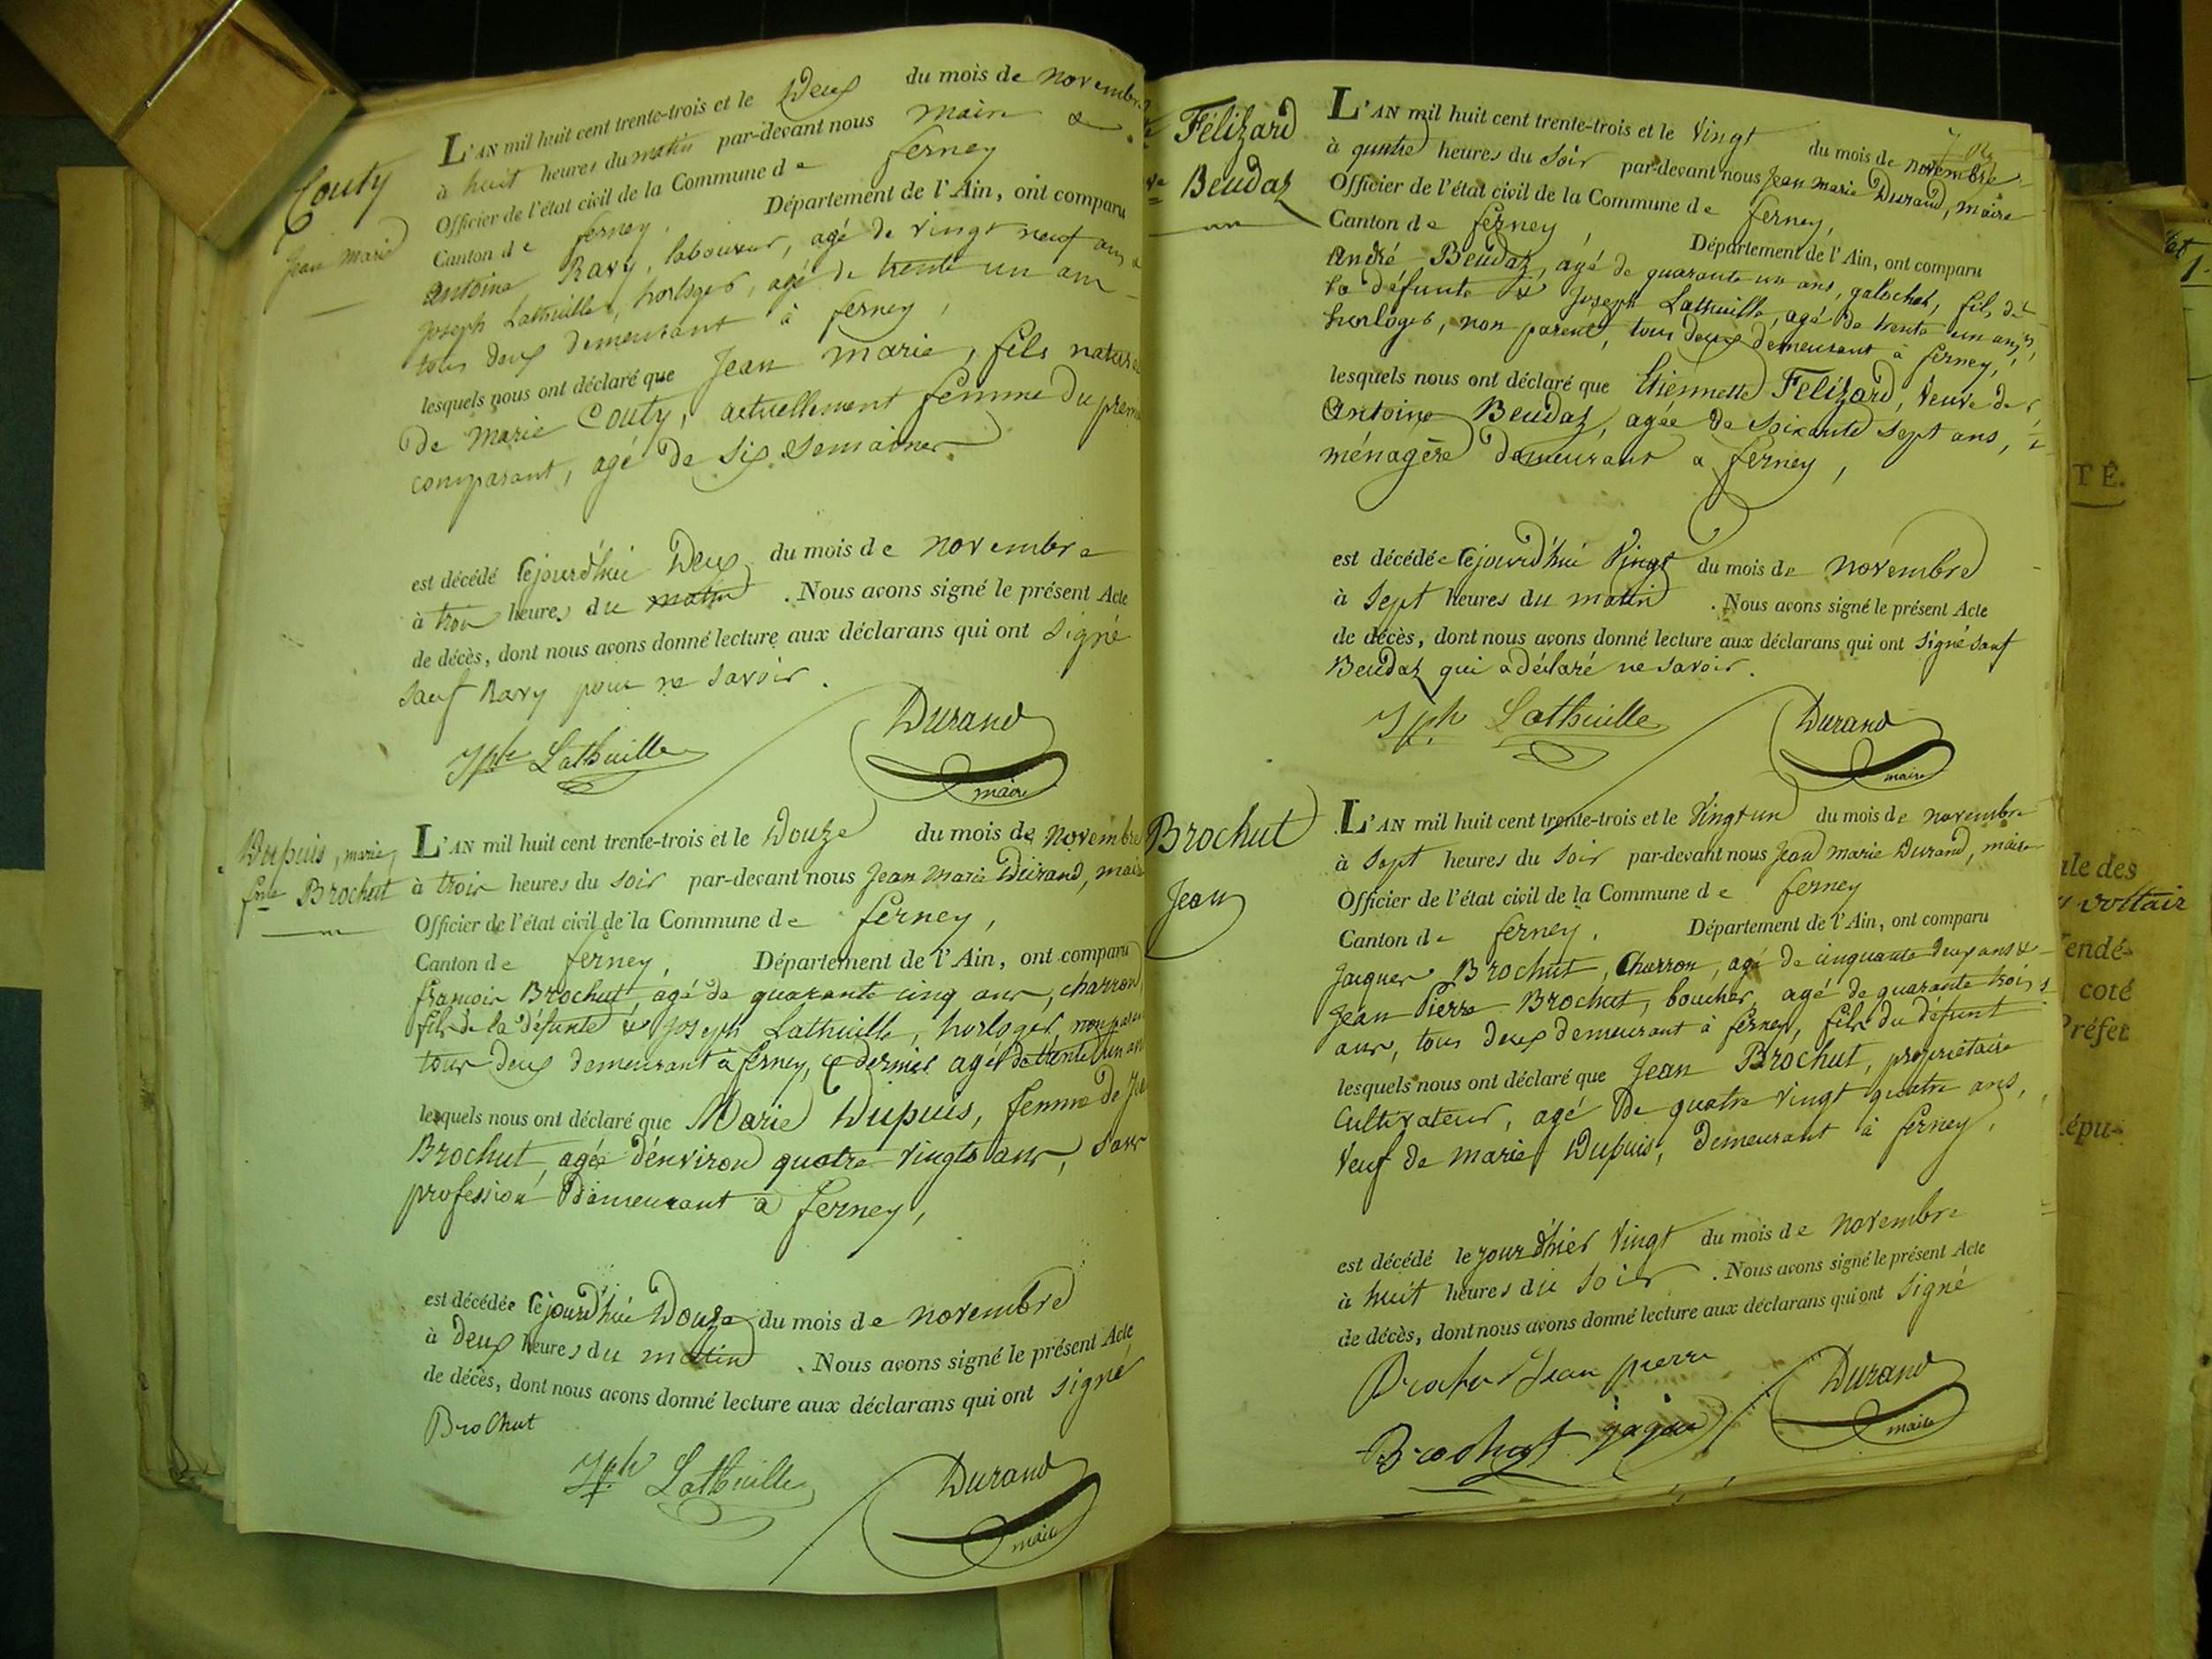 Couty
Jean Marie
L'AN mil huit cent trente-trois et le Deux du mois de novembre
à huit heures du matin par-devant nous maire &
Officier de l'état civil de la Commune de ferney
Canton de ferney, Département de l'Ain, ont comparu
antoine Ravy, laboureur, agé de vingt neuf ans &
joseph Lathuille, horloger, agé de trente un an
tous deux demeurant à ferney,
lesquels nous ont déclaré que Jean marie, fils naturel
de Marie Couty, actuellement femme du premier
comparant, agé de six semaines
est décédé cejourd'hui Deux du mois de novembre
à trois heures du matin . Nous avons signé le présent Acte
de décès, dont nous avons donné lecture aux déclarans qui ont signé
sauf Ravy pour ne savoir.
Jph Lathuille Durand
maire
Dupuis, marie
fme Brochut
L'AN mil huit cent trente-trois et le Douze du mois de novembre
à trois heures du soir par-devant nous Jean Marie Durand, maire
Officier de l'état civil de la Commune de ferney,
Canton de ferney, Département de l'Ain, ont comparu
françois Brochut, agé de quarante cinq ans, charron,
fils de la défunte & joseph Lathuille, horloger, non parent
tous deux demeurant à ferney, ce dernier agé de trente un an
lesquels nous ont déclaré que Marie Dupuis, femme de
Brochut, agée d'environ quatre vingts ans, sans
profession demeurant à ferney,
est décédée cejourd'hui Douze du mois de novembre
à deux heures du matin . Nous avons signé le présent Acte
de décès, dont nous avons donné lecture aux déclarans qui ont signé
Brochut
Jph Lathuille Durand
maire
Félizard
ve Beudaz
L'AN mil huit cent trente-trois et le vingt du mois de novembre
à quatre heures du soir par-devant nous Jean marie Durand, maire
Officier de l'état civil de la Commune de ferney,
Canton de ferney, Département de l'Ain, ont comparu
André Beudaz, agé de quarante un ans, galocher, fils de
la défunte & Joseph Lathuille, agé de trente un ans,
horloger, non parent, tous deux demeurant à ferney,
lesquels nous ont déclaré que Etiennette Félizard, veuve de
Antoine Beudaz, agée de soixante sept ans,
ménagère demeurant a ferney,
est décédée cejourd'hui vingt du mois de novembre
à sept heures du matin . Nous avons signé le présent Acte
de décès, dont nous avons donné lecture aux déclarans qui ont signé sauf
Beudaz qui a déclaré ne savoir.
Jph Lathuille Durand
maire
Brochut
Jean
L'AN mil huit cent trente-trois et le vingt un du mois de novembre
à sept heures du soir par-devant nous Jean marie Durand, maire
Officier de l'état civil de la Commune de ferney
Canton de ferney, Département de l'Ain, ont comparu
Jacques Brochut, Charron, agé de cinquante deux ans &
Jean Pierre Brochut, boucher, agé de quarante trois
ans, tous deux demeurant à ferney, fils du défunt
lesquels nous ont déclaré que Jean Brochut, propriétaire
Cultivateur, agé de quatre vingt quatre ans,
veuf de marie Dupuis, demeurant à ferney,
est décédé le jour d'hier vingt du mois de novembre
à huit heures du soir . Nous avons signé le présent Acte
de décès, dont nous avons donné lecture aux déclarans qui ont signé
Jean pierre Durand
Brochut maire
TÉ.
ale des
voltair
endé-
coté
Préfet
épu-